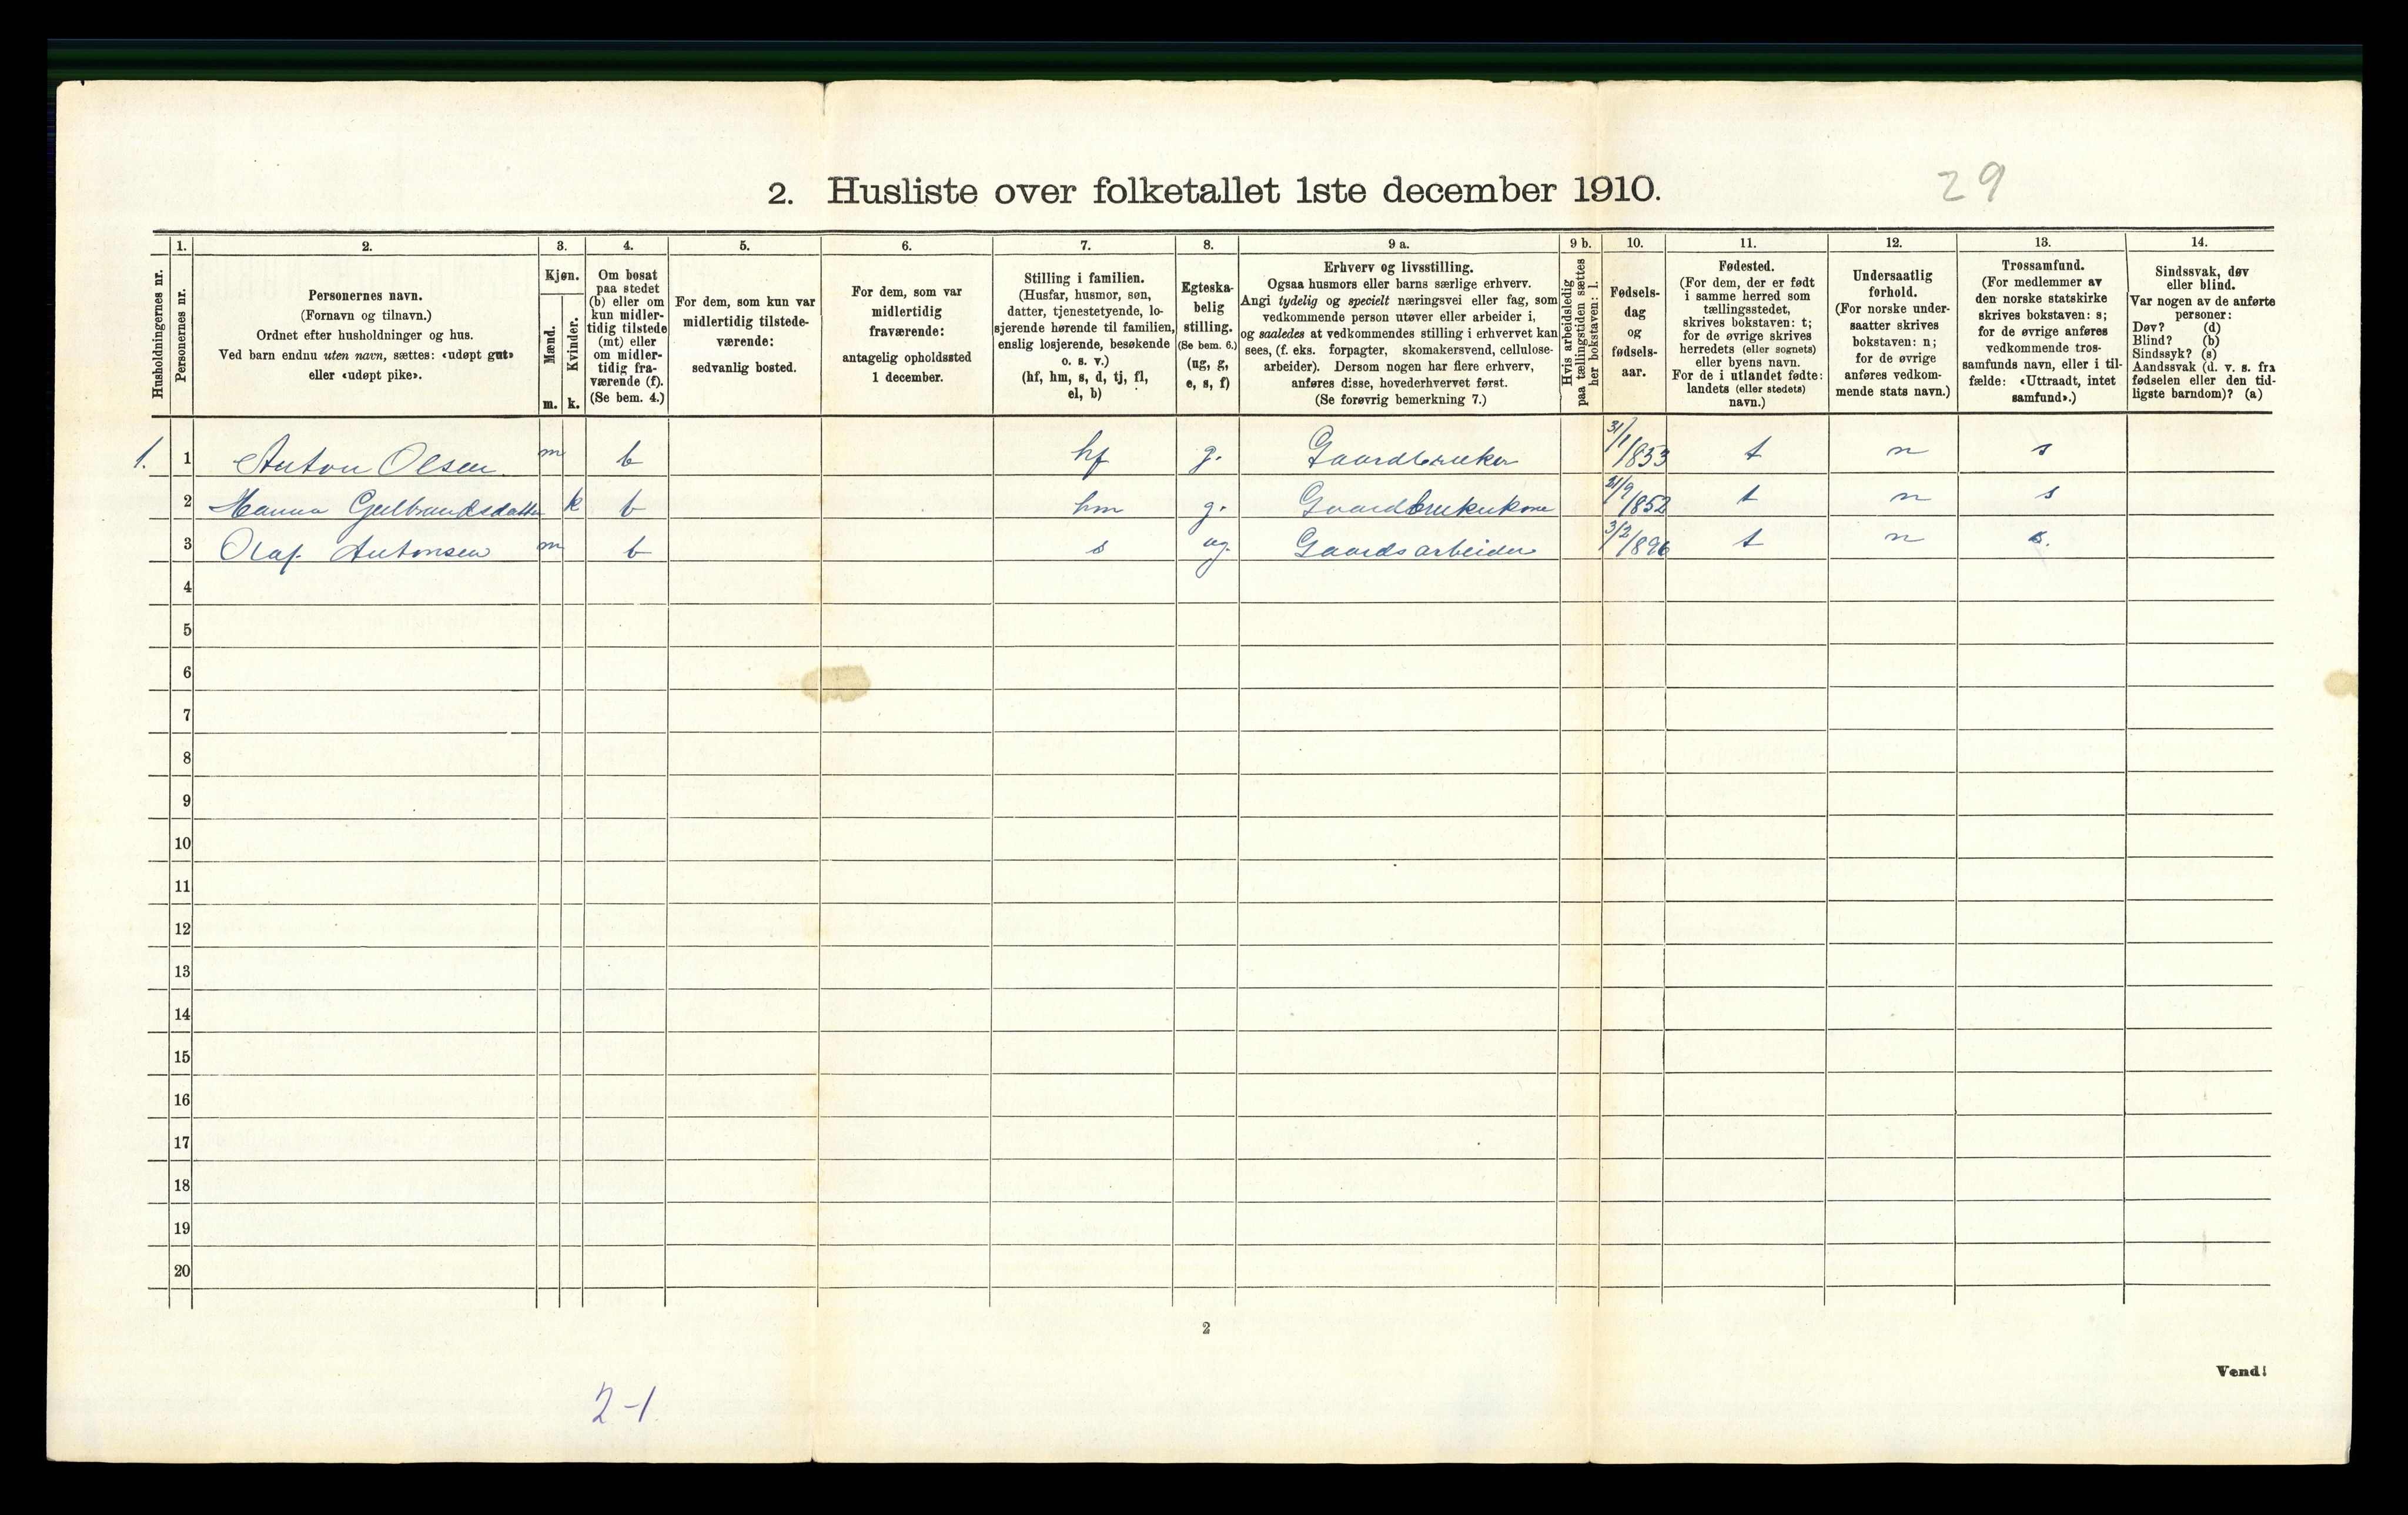 2. Husliste over folketallet 1ste december 1910.
29
Husholdningernes nr.
1.
Personernes nr.
2.
Personernes navn.
(Fornavn og tilnavn.)
Ordnet efter husholdninger og hus.
Ved barn endnu uten navn, sættes: «udøpt gut»
eller «udøpt pike».
3.
Kjøn.
Mænd.
m.
Kvinder.
k.
4.
Om bosat
paa stedet
(b) eller om
kun midler-
tidig tilstede
(mt) eller
om midler-
tidig fra-
værende (f).
(Se bem. 4.)
5.
For dem, som kun var
midlertidig tilstede-
værende:
sedvanlig bosted.
6.
For dem, som var
midlertidig
fraværende:
antagelig opholdssted
1 december.
7.
Stilling i familien.
(Husfar, husmor, søn,
datter, tjenestetyende, lo-
sjerende hørende til familien,
enslig losjerende, besøkende
o. s. v.)
(hf, hm, s, d, tj, fl,
el, b)
8.
Egteska-
belig
stilling.
(Se bem. 6.)
(ug, g,
e, s, f)
9 a.
Erhverv og livsstilling.
Ogsaa husmors eller barns særlige erhverv.
Angi tydelig og specielt næringsvei eller fag, som
vedkommende person utøver eller arbeider i,
og saaledes at vedkommendes stilling i erhvervet kan
sees, (f. eks. forpagter, skomakersvend, cellulose-
arbeider). Dersom nogen har flere erhverv,
anføres disse, hovederhvervet først.
(Se forøvrig bemerkning 7.)
9 b.
Hvis arbeidsledig
paa tællingstiden sættes
her bokstaven: l.
10.
Fødsels-
dag
og
fødsels-
aar.
11.
Fødested.
(For dem, der er født
i samme herred som
tællingsstedet,
skrives bokstaven: t;
for de øvrige skrives
herredets (eller sognets)
eller byens navn.
For de i utlandet fødte:
landets (eller stedets)
navn.)
12.
Undersaatlig
forhold.
(For norske under-
saatter skrives
bokstaven: n;
for de øvrige
anføres vedkom-
mende stats navn.)
13.
Trossamfund.
(For medlemmer av
den norske statskirke
skrives bokstaven: s;
for de øvrige anføres
vedkommende tros-
samfunds navn, eller i til-
fælde: «Uttraadt, intet
samfund».)
14.
Sindssvak, døv
eller blind.
Var nogen av de anførte
personer:
Døv? (d)
Blind? (b)
Sindssyk? (s)
Aandssvak (d. v. s. fra
fødselen eller den tid-
ligste barndom)? (a)
1. 1 Anton Olsen m b hf g. Gaardbruker 31/1 1853 t n s
2 Hanna Gulbrandsdatter k b hm g. Gaardbrukerkone 21/9 1852 t n s
3 Olaf Antonsen m b s ug. Gaardsarbeider 3/2 1896 t n s.
4
5
6
7
8
9
10
11
12
13
14
15
16
17
18
19
20
2
Vend!
2-1